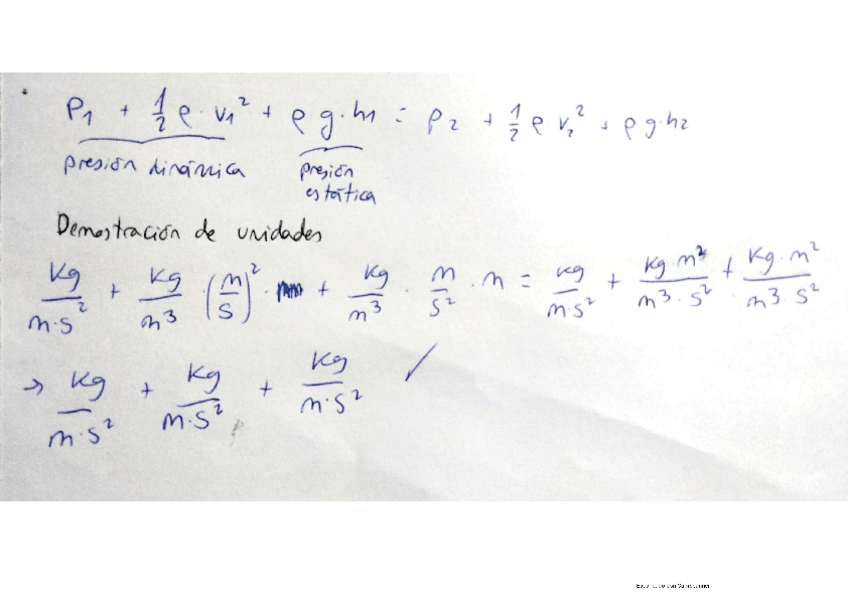 P₁ + 1/2 ρ · v₁² + ρ g · h₁ = P₂ + 1/2 ρ v₂² + ρ g · h₂
presión dinámica presión
estática
Demostración de unidades
Kg/m·s² + Kg/m³ · (m/s)² · + Kg/m³ · m/s² · m = Kg/m·s² + Kg·m²/m³·s² + Kg·m²/m³·s²
→ Kg/m·s² + Kg/m·s² + Kg/m·s² ✓